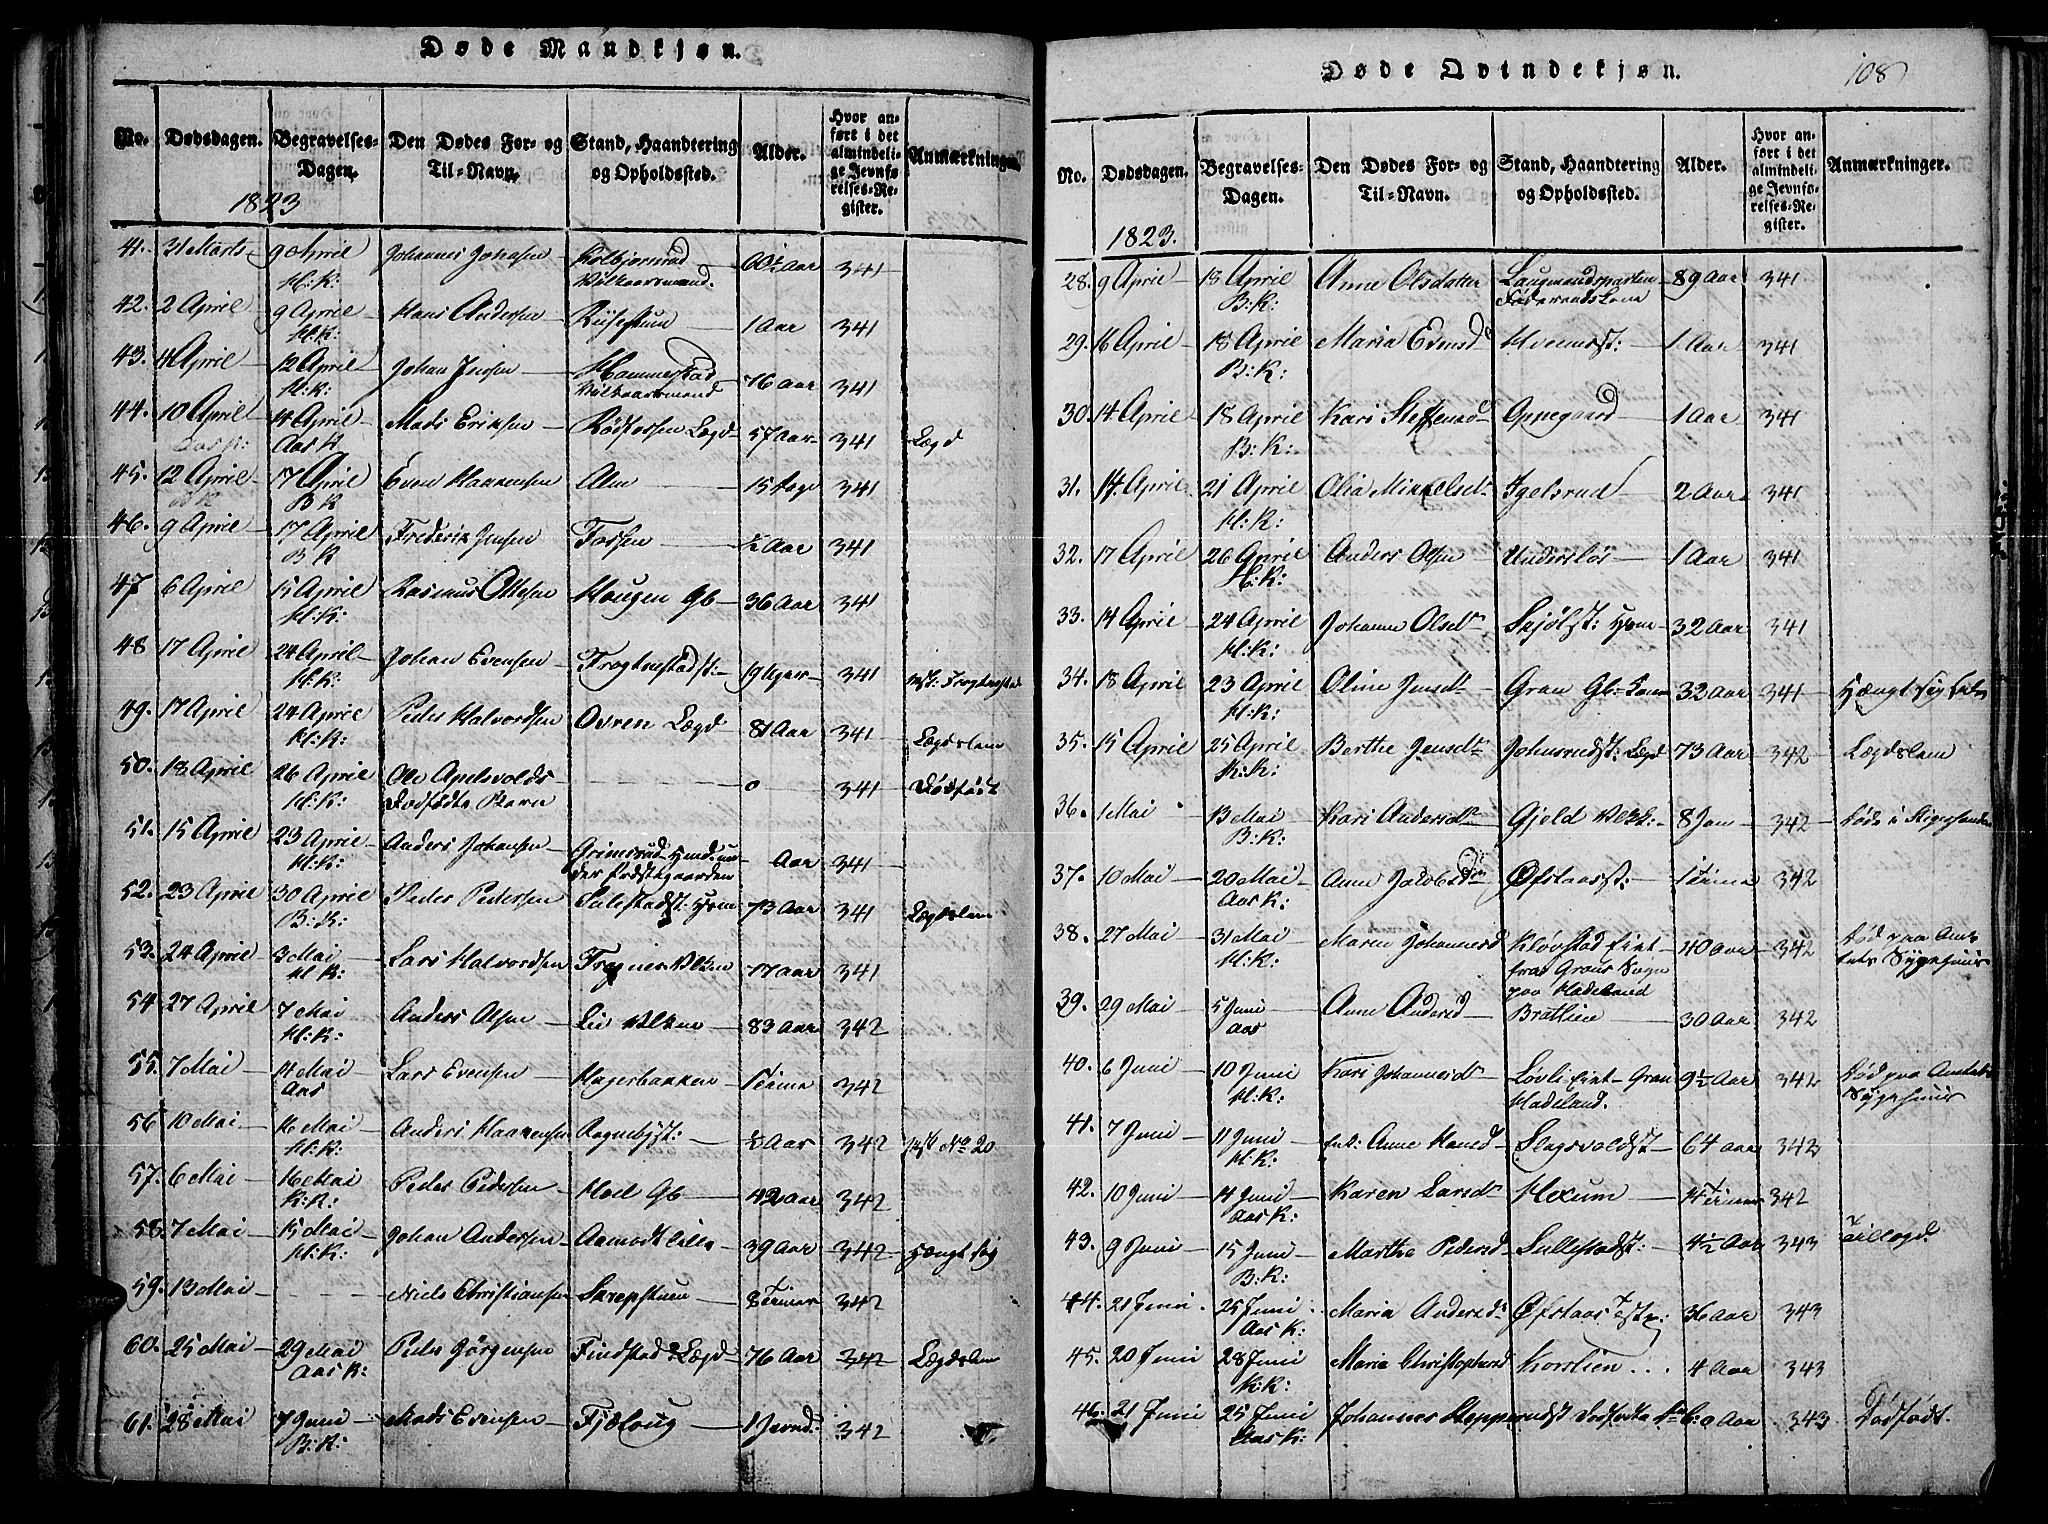 Døde Mandkjøn.
No. Dødsdagen. Begravelses-Dagen. Den Dødes For- og Til-Navn. Stand, Haandtering og Opholdssted. Alder. Hvor anført i det almindelige Jevnførelses-Register. Anmærkninger.
1823
41. 31 Marts 9 April H:K: Johannes Johnsen Kolbjørnsrud Vilkaarsmand. Aar 341
42. 2 April 9 April H:K: Hans Andersen Riisestuen 1 Aar 341
43. 4 April 12 April H:K: Johan Hammerstad Vilkaarsmand 76 Aar 341
44. 10 April 14 April Aas K Mads Eriksen Rødfossen Lægd 57 Aar 341 Lægd
45. 12 April 17 April B K Even Haakensen Alm 15 341
46. 9 April 17 April B K Frederik Jensen Fossen ½ Aar 341
47 6 April 15 April H:K: Rasmus Ottesen Haugen Gb 36 Aar 341
48 17 April 24 April H:K: Johan Evensen Frogtnerstadst: 19 341
49. 17 April 24 April H:K: Peder Halvordsen Ovren Lægd 81 Aar 341 Lægdslem
50. 18 April 26 April H:K: Ole Apelsvolds dødfødte Barn 0 341 Dødfødt
51. 15 April 23 April H:K: Anders Johansen Grimsrud under Prestegaarden Aar 341
52. 23 April 30 April B:K: Peder Pedersen 73 Aar 341 Lægdslem
53. 24 April 3 Mai H:K: Lars Halvordsen 77 Aar 341
54. 27 April 7 Mai H:K: Anders Olsen 83 Aar 342
55. 7 Mai 14 Mai Aas Lars Evensen Hagerbakken 1 Time 342
56 10 Mai 16 Mai H:K: Anders Haakensen Rognebyst: ½ Aar 342 No 20
57. 6 Mai 16 Mai K:K: Peder Pedersen Hoel Gb 42 Aar 342
58. 7 Mai 15 Mai H:K: Johan Andersen Aamodt lille 39 Aar 342 Hængt sig
59. 13 Mai Niels Christiansen Skrepstuen 8 Timer 342
60. 25 Mai 29 Mai Aas K: Peder Jørgensen Findstad Lægd 76 Aar 342 Lægdslem
61. 28 Mai 7 Juni B:K: Mads Evensen Fjelhaug 342
Døde Qvindekjøn.
108
No. Dødsdagen. Begravelses-Dagen. Den Dødes For- og Til-Navn. Stand, Haandtering og Opholdssted. Alder. Hvor anført i det almindelige Jevnførelses-Register. Anmærkninger.
1823.
28. 9 April 18 April B:K: Anne Olsdatter Laugmandsparten Føderaadskone 89 Aar 341
29. 16 April 18 April B:K: Maria Evensd Hveemst: 1 Aar 341
30. 14 April 18 April B:K: Kari Steffensd Oppegaard 1 Aar 341
31. 14. April 21 April H:K: Olia Mikkelsdr Igelsrud 2 Aar 341
32. 17 April 26 April H:K: Anders Olsen Undersløs 1 Aar 341
33. 14 April 24 April H:K: Johanne Olsdr Skjølst: 32 Aar 341
34. 18 April 23 April H:K: Oline Jensdr Gran Gb: Kone 32 Aar 341 Hængt sig selv
35. 15 April 25 April K:K: Berthe Jensdr Johnsrudst: Lægd 73 Aar 342 Lægdslem
36. 1 Mai 13 Mai B:K: Kari Andersdr Gjeld 8 342 Døde i
37. 10 Mai 20 Mai Aas K: Anne Jacobsd Øfstaasst: 1 Time 342
38. 27 Mai 31 Mai H:K: Maren Johannesd Kløvstad fra Grans Sogn paa Hadeland 40 Aar 342 Død paa Amtets Sygehuus
39. 29 Mai 5 Juni Aas Anne Andersd Brattlien 30 Aar 342
40. 6 Juni 10 Juni H:K: Kari Johannesdr Løvli Gran Hadeland. 9½ Aar 342 Død paa Amtets Sygehuus
41. 7 Juni 11 Juni H:K: Enk: Anne Hansd Slagsvoldst 64 Aar 342
42. 10 Juni 14 Juni Aas K: Karen Larsdr Hexum 14 Timer 342
43. 9 Juni 15 Juni B:K: Marthe Pedersd Sullestadst: 4½ Aar 343 Tillægd
44. 21 Juni 25 Juni Aas K: Maria Andersdr Øfstaas 36 Aar 343
45. 20 Juni 28 Juni K:K: Maria Christophersd Korslien 4 Aar 343
46. 21 Juni 25 Juni Aas K: Johannes dødfødte 0 Aar 343 Dødfødt.